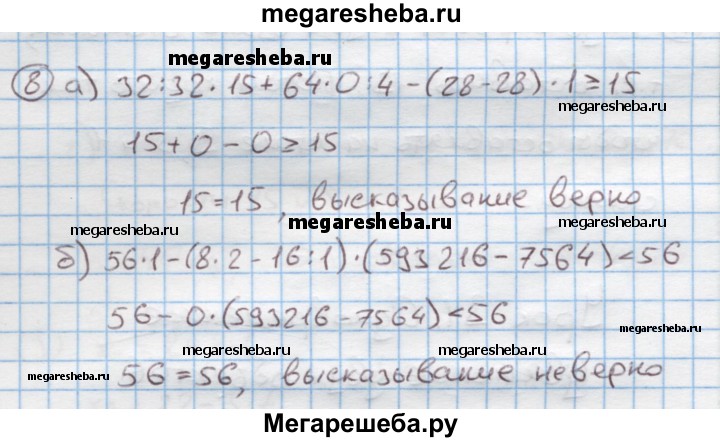 megaresheba.ru
megaresheba.ru
8 а) 32:32·15+64·0:4-(28-28)·1≥15
megaresheba.ru
15+0-0≥15
15=15, высказывание верно
megaresheba.ru
megaresheba.ru
megaresheba.ru
б) 56·1-(8·2-16:1)·(593216-7564)<56
56-0·(593216-7564)<56
megaresheba.ru
megaresheba.ru
megaresheba.ru
56=56, высказывание неверно
megaresheba.ru
Мегарешеба.ру